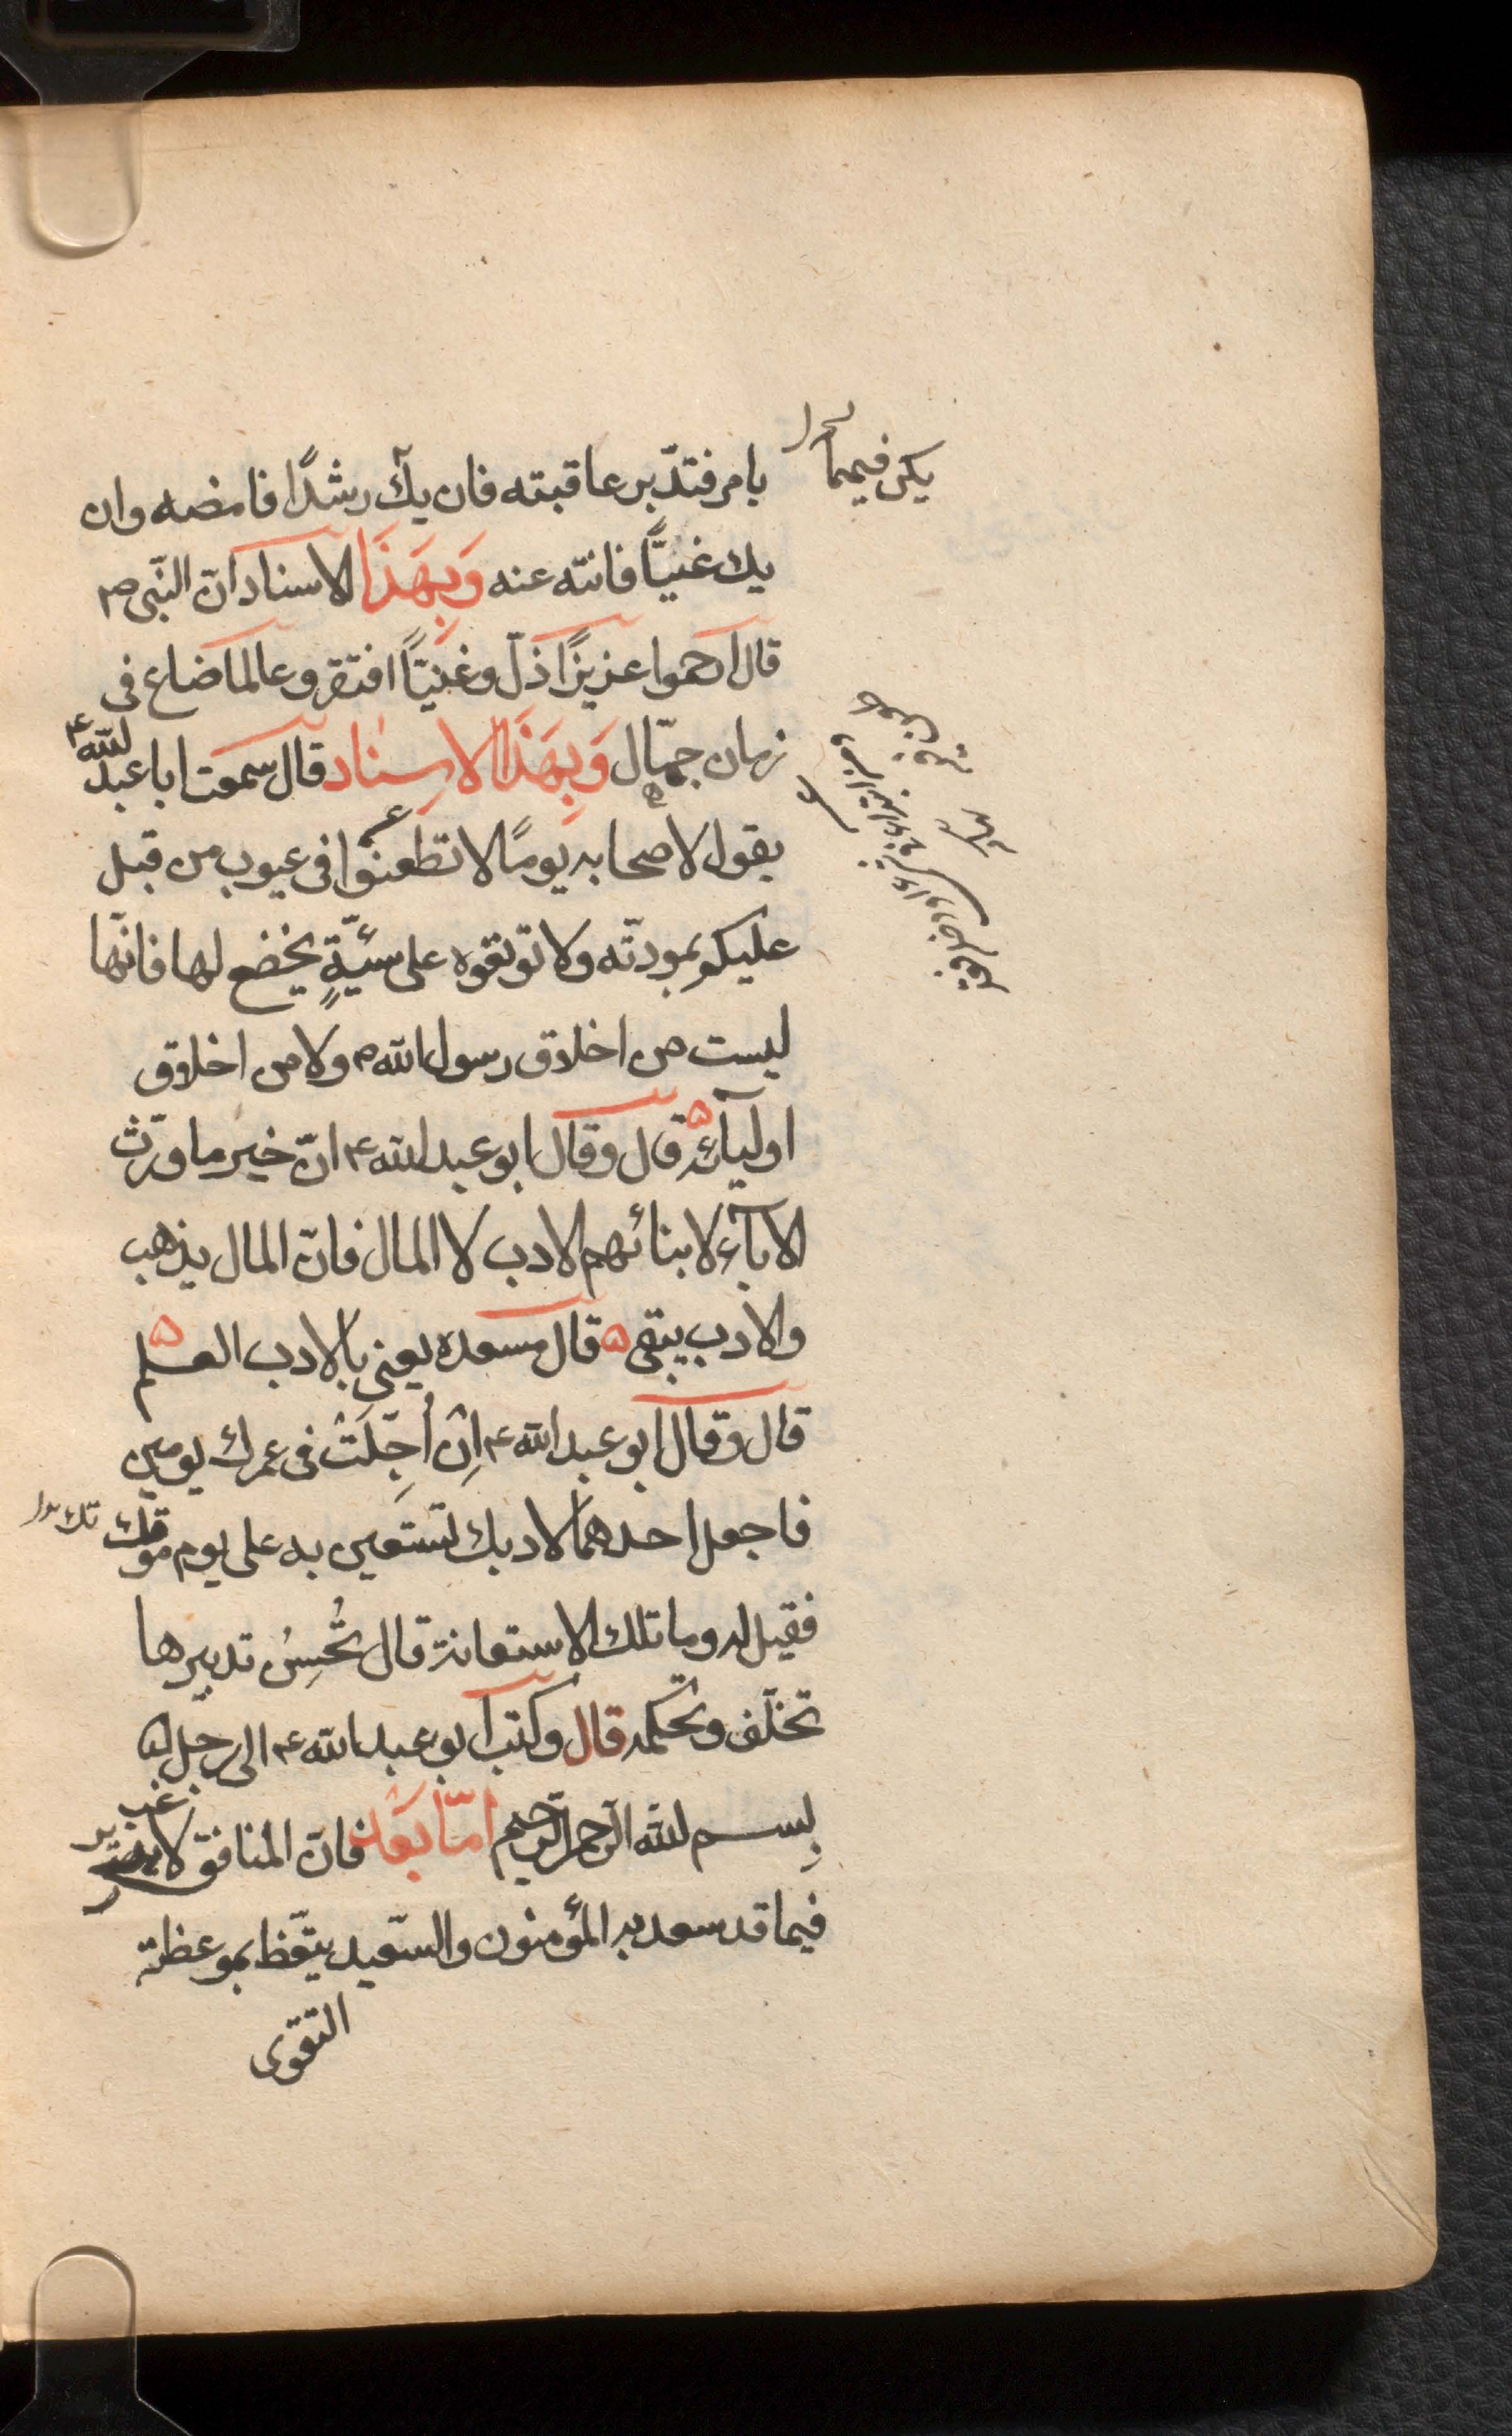 يكن فيهما
بامر فتدّبر عاقبته فان يك رشدًا فامضه وان
يك غيًّا فانته عنه وَبِهَذَا الاسناد انّ النّبى ص
قال ارحموا عزيزًا ذلّ وغنيّاً افتقر وعالما ضاع فى
زمان جهّال وَبِهَذَا الاسِناد قال سمعت ابا عبد الله ع
يقول لاصحابه يومًا لا تطعنوا فى عيوب من قبل
عليكم بمودته ولا توبقوه على سيئةٍ يخضع لها فانّها
ليست من اخلاق رسول الله ص ولا من اخلاق
اوليآئه قال وقال ابو عبد الله ع انّ خير ما ورّث
الآبآء لابنائهم الادب لا المال فانّ المال يذهب
والادب يبقى قال مسعده يعنى بالادب العلم
قال وقال ابو عبد الله ع اِن اُجِّلَتْ فى عمرك يومين
فاجعل احدهما لادبك لتستعين به على يوم موتك
فقيل له وما تلك الاستعانة قال تُحسِنُ تدبير ها
تخلّف وتحكمه قال وكتب ابو عبد الله ع الى رجل
بِسم الله الرّحمن الرّحيم امّا بَعْد فانّ المنافق لا يرغب
فيما قد سعد به المؤمنون والسّعيد يتّعظ بموعظة
التقوى